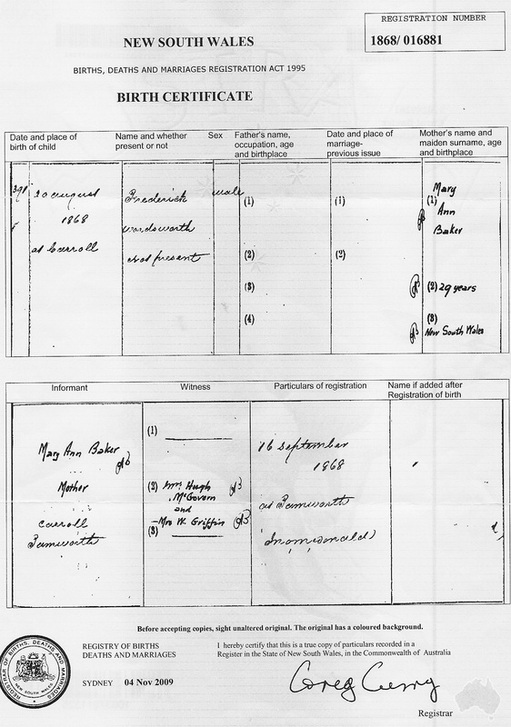 REGISTRATION NUMBER
1868/ 016881
NEW SOUTH WALES
BIRTHS, DEATHS AND MARRIAGES REGISTRATION ACT 1995
BIRTH CERTIFICATE
Date and place of birth of child
Name and whether present or not
Sex
Father's name, occupation, age and birthplace
Date and place of marriage- previous issue
Mother's name and maiden surname, age and birthplace
20 August
1868
at Carroll
Frederick
Wordsworth
Not present
male
(1)
(2)
(3)
(4)
(i)
(2)
Mary
(1) Ann
Baker
(2) 29 years
(3)
New South Wales
Informant
Witness
Particulars of registration
Name if added after Registration of birth
Mary Ann Baker
Mother
Carroll
Tamworth
(1)
(2) Mrs Hugh
McGovern
and
Mrs W. Griffin
(3)
16 September
1868
at Tamworth
Before accepting copies, sight unaltered original. The original has a coloured background.
REGISTRY OF BIRTHS
DEATHS AND MARRIAGES
SYDNEY 04 Nov 2009
I hereby certify that this is a true copy of particulars recorded in a
Register in the State of New South Wales, in the Commonwealth of Australia
Greg Curry
Registrar
REGISTRAR OF BIRTHS, DEATHS AND MARRIAGES
NEW SOUTH WALES